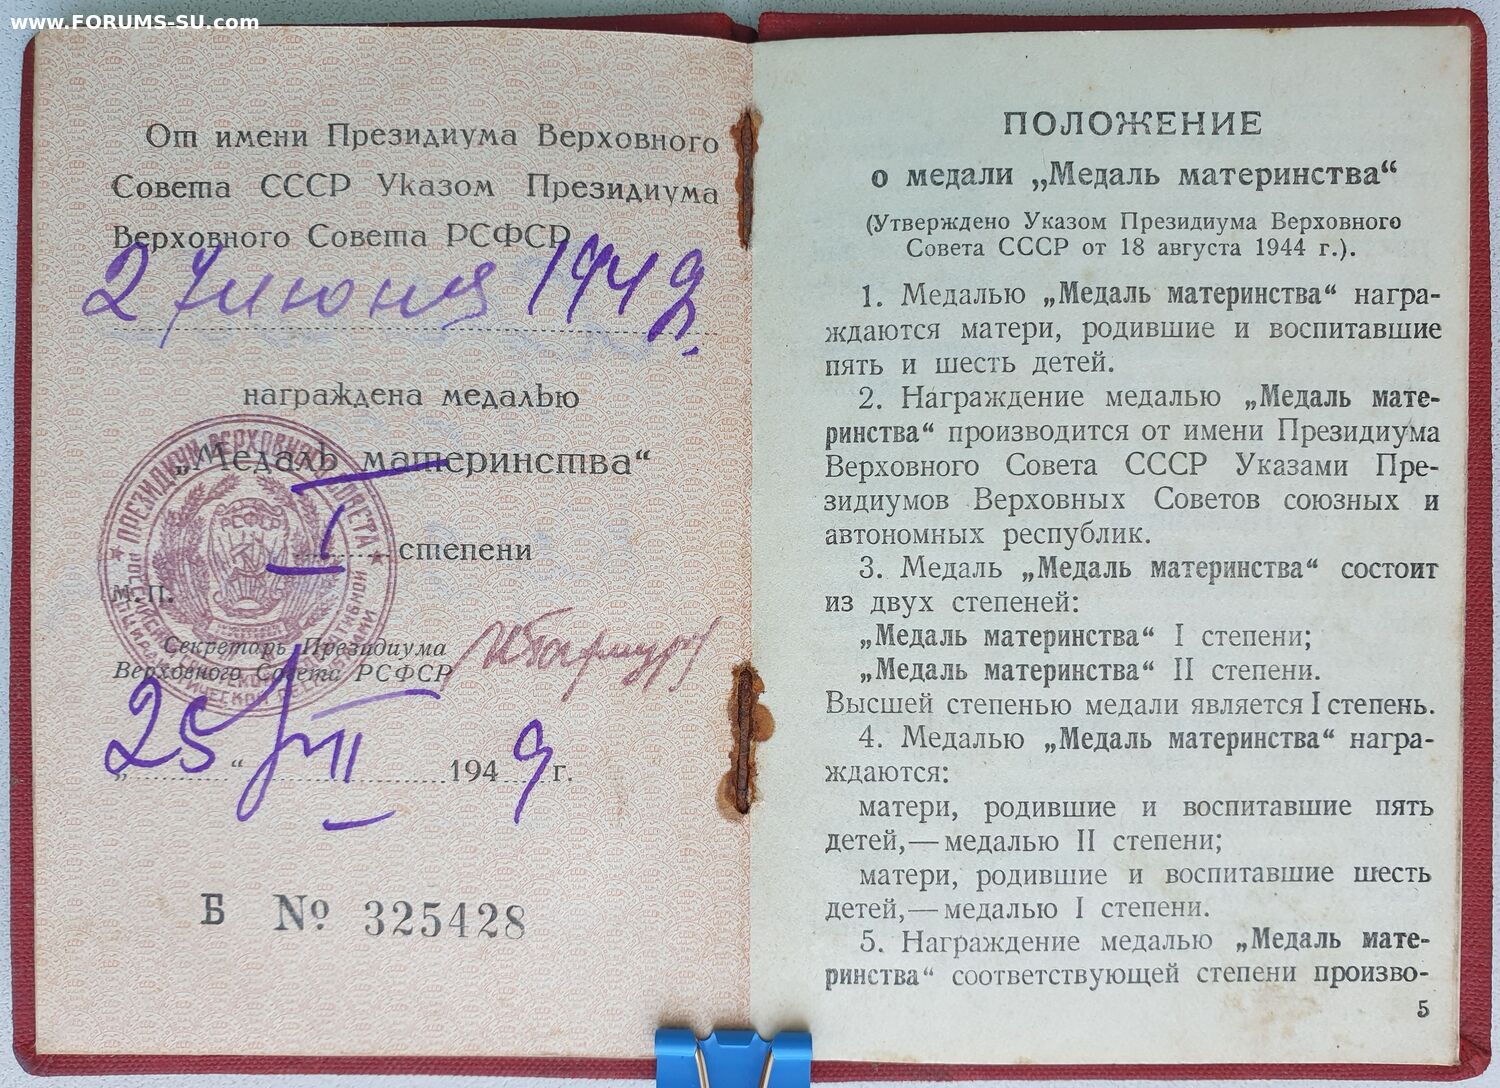 www.FORUMS-SU.com
От имени Президиума Верховного
Совета СССР Указом Президиума
Верховного Совета РСФСР
27 июня 1949г.
награждена медалью
„Медаль материнства“
I степени
М.П.
Секретарь Президиума
Верховного Совета РСФСР
„25“ VII 1949 г.
Б № 325428
ПОЛОЖЕНИЕ
о медали „Медаль материнства“
(Утверждено Указом Президиума Верховного
Совета СССР от 18 августа 1944 г.).
1. Медалью „Медаль материнства“ награ-
ждаются матери, родившие и воспитавшие
пять и шесть детей.
2. Награждение медалью „Медаль мате-
ринства“ производится от имени Президиума
Верховного Совета СССР Указами Пре-
зидиумов Верховных Советов союзных и
автономных республик.
3. Медаль „Медаль материнства“ состоит
из двух степеней:
„Медаль материнства“ I степени;
„Медаль материнства“ II степени.
Высшей степенью медали является I степень.
4. Медалью „Медаль материнства“ награ-
ждаются:
матери, родившие и воспитавшие пять
детей,—медалью II степени;
матери, родившие и воспитавшие шесть
детей,—медалью I степени.
5. Награждение медалью „Медаль мате-
ринства“ соответствующей степени произво-
5